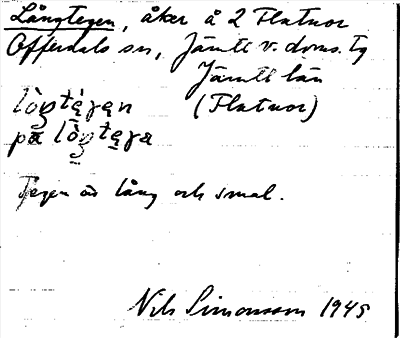 Långtegen, åker å 2 Flatnor
Offerdals sn, Jämtl. v. doms. tg
Jämtl. län
lòŋtéγen (Flatnor)
på lòŋteγa
Tegen är lång och smal.
Nils Simonsson 1945